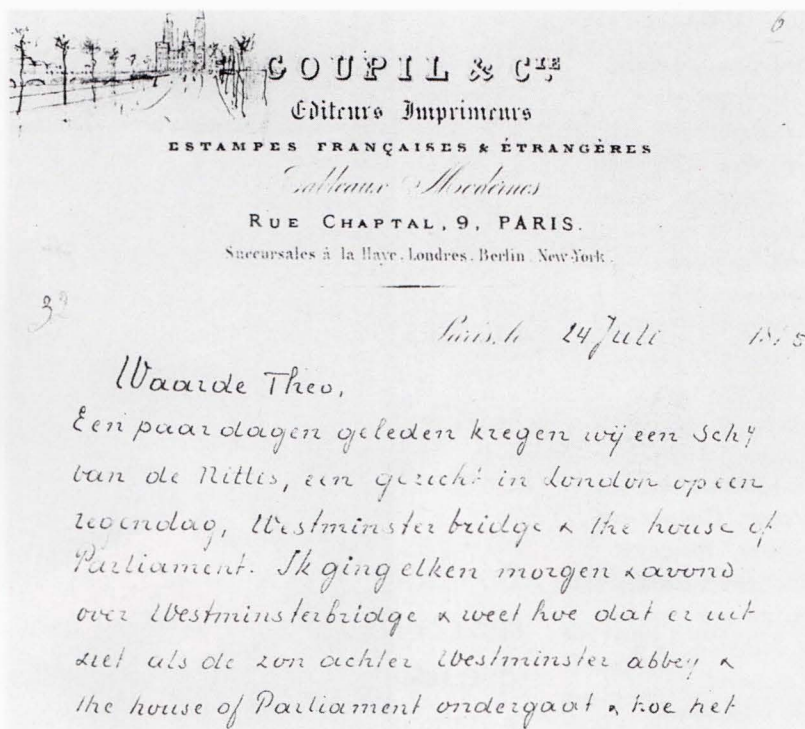 6
GOUPIL & CIE
Editeurs Imprimeurs
ESTAMPES FRANÇAISES & ÉTRANGÈRES
Tableaux Modernes
RUE CHAPTAL, 9, PARIS.
Succursales à la Haye. Londres. Berlin. New-York.
32
Paris, le 24 Juli 1875
Waarde Theo,
Een paar dagen geleden kregen wij een schij
van de Nittis, een gezicht in London op een
regendag, Westminster bridge & the house of
Parliament. Ik ging elken morgen & avond
over Westminsterbridge & weet hoe dat er uit
ziet als de zon achter Westminster abbey &
the house of Parliament ondergaat & hoe het